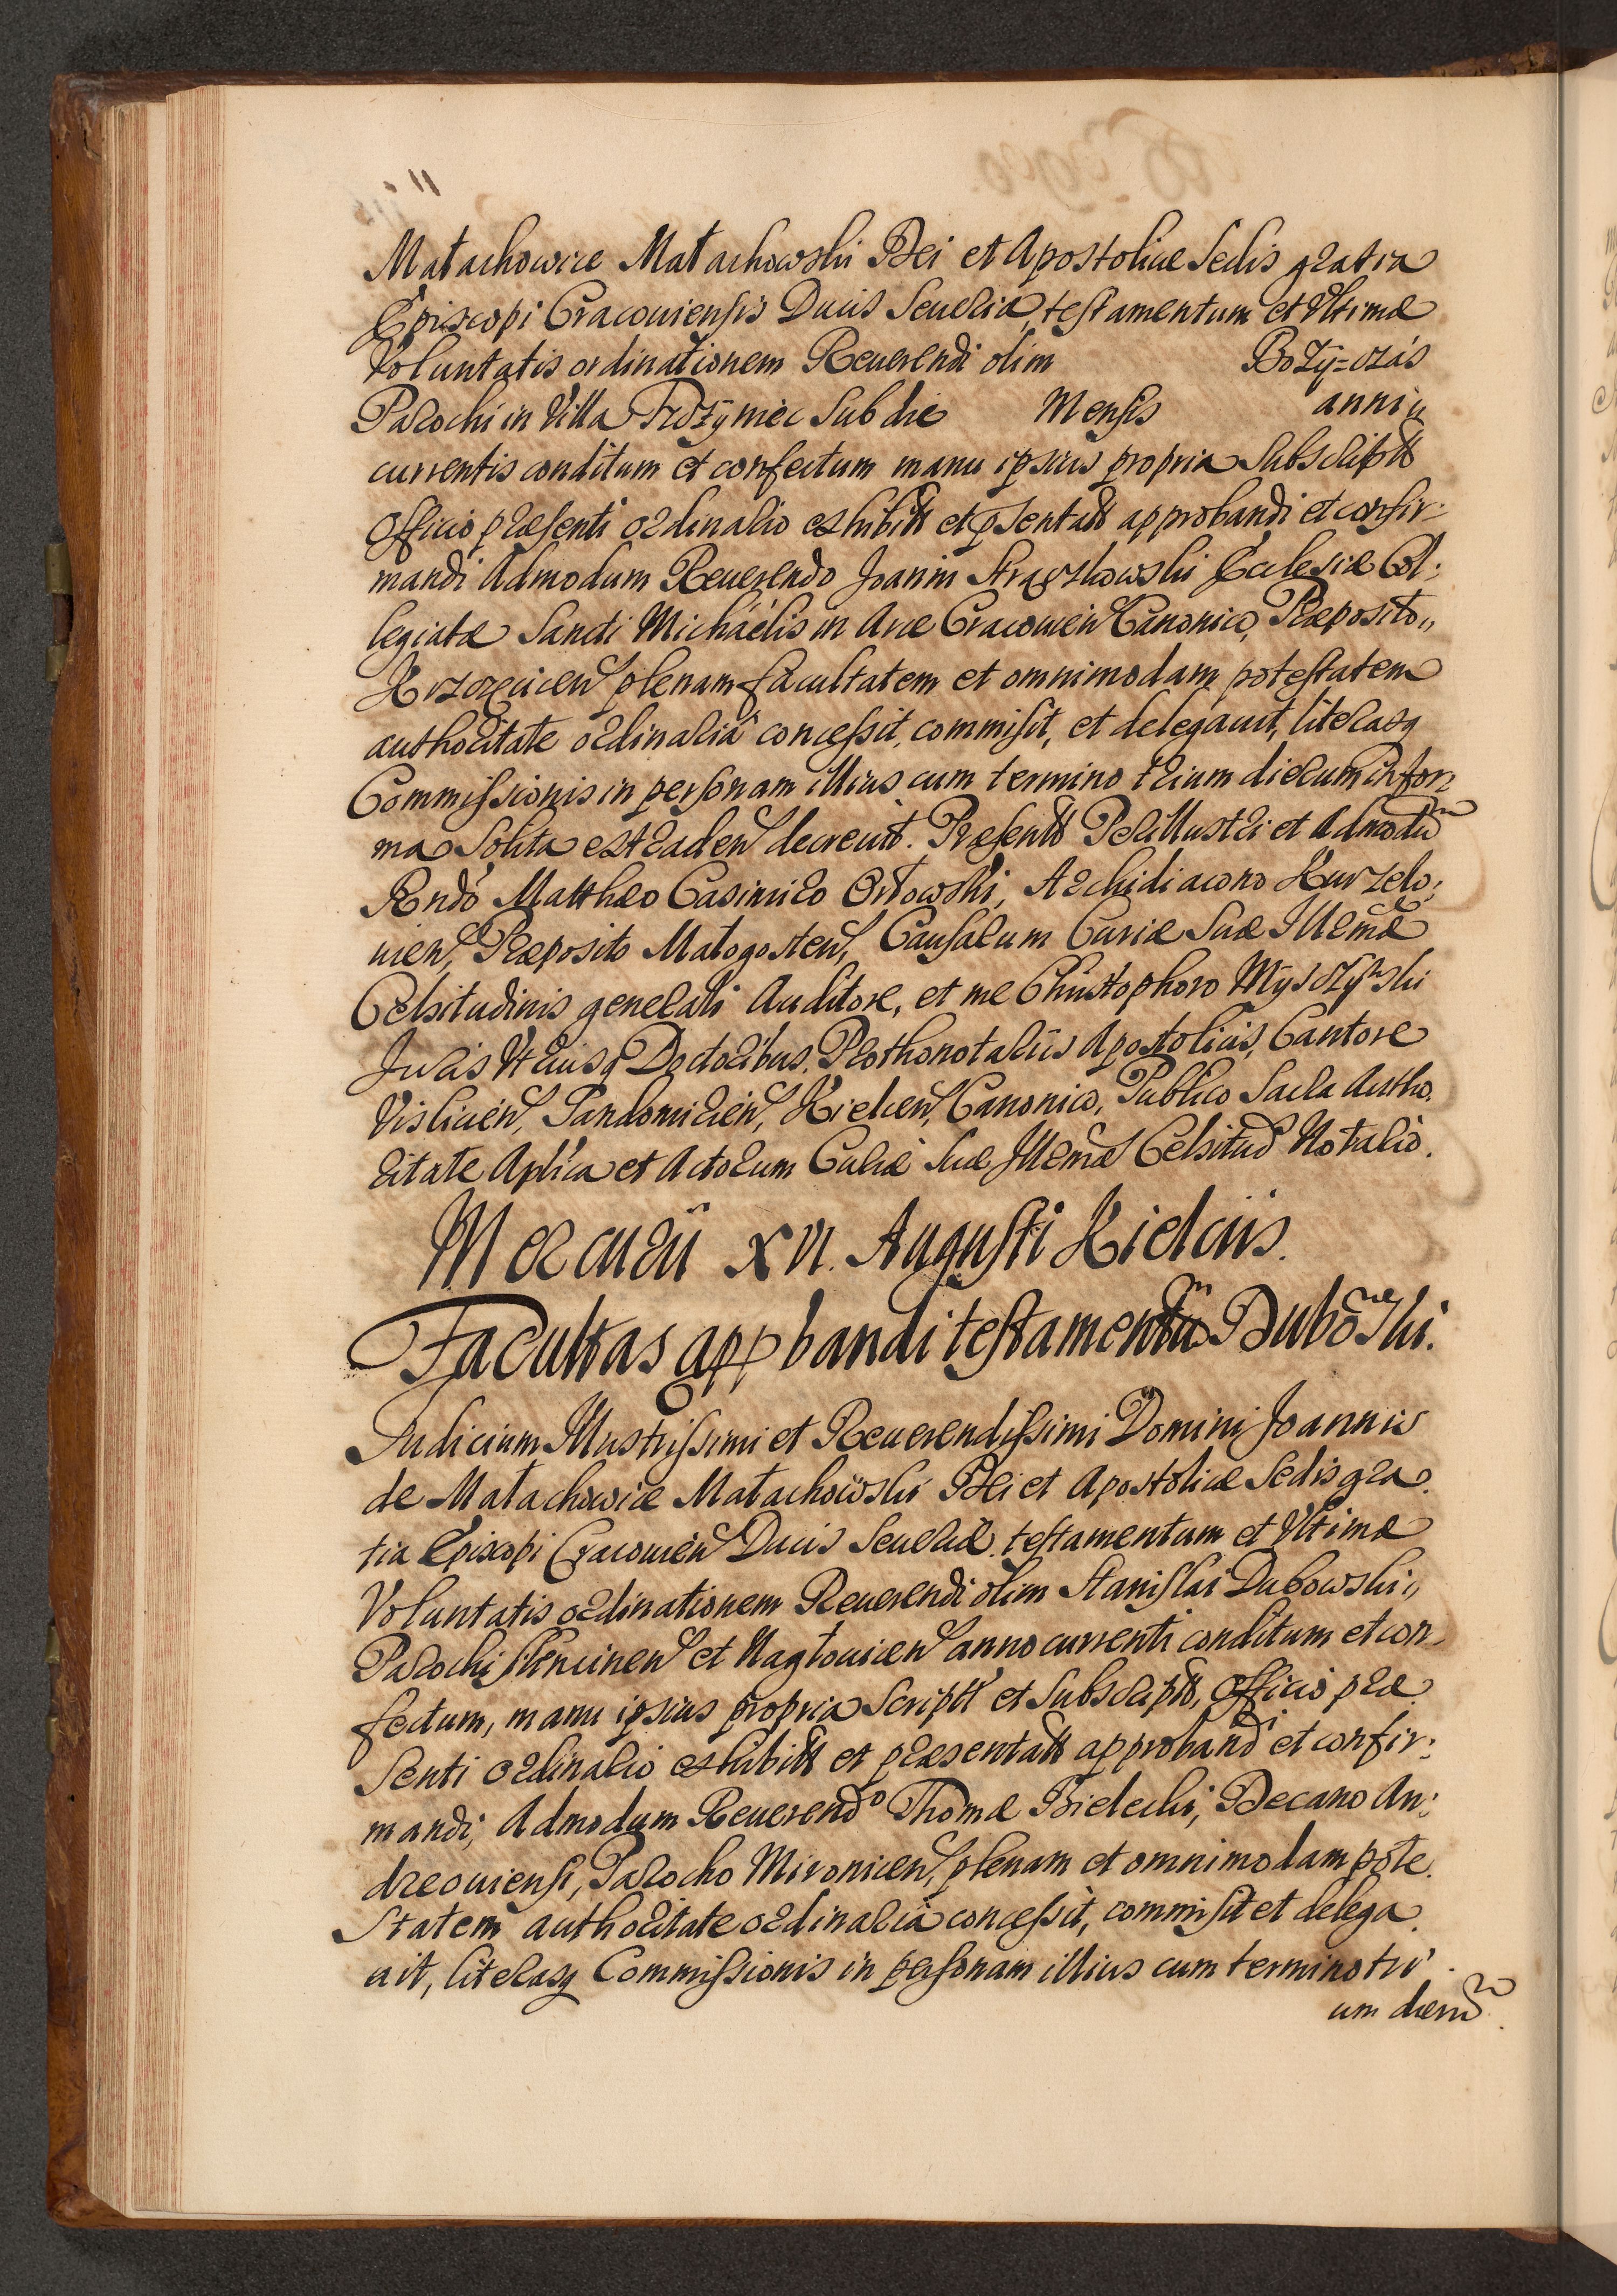 Małachowice Małachowski Dei et Apostolicæ Sedis gratia
Episcopi Cracouiensis Ducis Seueriæ, testamentum et Vltimæ
Voluntatis ordinationem Reuerendi olim Boży-czas
Parochi in Villa sub die Mensis anni
currentis conditum et confectum manu ipsius propria subscriptũ
officio præsenti ordinario exhibitũ et pñsentatũ approbandi et confir-
mandi Admodum Reuerendo Joanni Ecclesiæ Col:
legiatæ Sancti Michaelis in Arce Cracouien Canonico, Præposito
plenam facultatem et omnimodam potestatem
authoritate ordinaria concessit, commisit, et delegauit, literasq
Commissionis in personam illius cum termino trium dierum in for-
ma solita extraden decreuit. Præsentt Perillustri et Admodũ
Rndo Matthæo Casimiro Orłowski, Archidiacono Kurzelo:
uien, Præposito Małogosten, Causarum Curiæ Suæ Illmæ
Celsitudinis generali Auditore, et me Christophoro
Juris Vtriusq Doctoribus, Prothonotariis Apostolicis, Cantore
Vislicien, Sandomirien, Kielcen, Canonico, Publico Sacra Autho
ritate Aplica et Actorum Curiæ Suæ Illmæ Celsitud Notario.
Mercurii XVI. Augusti Kielciis.
Facultas appbandi testamentũ Dubowski.
Judicium Illustrissimi et Reuerendissimi Domini Joannis
de Małachowice Małachowski Dei et Apostolicæ Sedis gra
tia Episcopi Cracouien Ducis Seueriæ, testamentum et Vltimæ
Voluntatis ordinationem Reuerendi olim Stanislai Dubowski,,
Parochi et Nagłouicen anno currenti conditum et con
fectum, manu ipsius propria scriptũ et subscriptũ, officio præ
senti ordinario exhibitũ et præsentatũ approbandi et confir:
mandi, Admodum Reuerendo Thomæ Bielecki, Decano An:
dreouiensi, Parocho Mironicen, plenam et omnimodam pote
statem authoritate ordinaria concessit, commisit et delega
uit, literasq Commissionis in personam illius cum termino tri
um dierũ